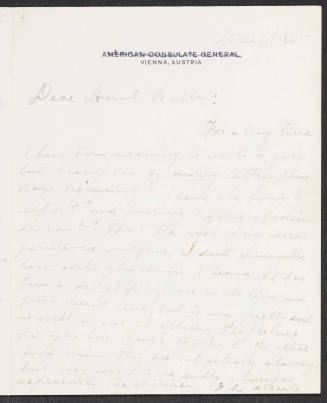 AMERICAN CONSULATE GENERAL
VIENNA, AUSTRIA
Dear Aunt Belle:
For a long time
I have been meaning to write to you
but I compose so many letters these
days beginning "I have the honor to
report" and ending "your obedient
servant" that the rest of my corres
pondence suffers. I don't remember
how well you know Vienna. It has
been a delightful place in its time, and
quite recent time, but is now pretty sad
as well as most of
hungry here though thanks to the allied
food trains they are not actually starving
but they look
especially the children.